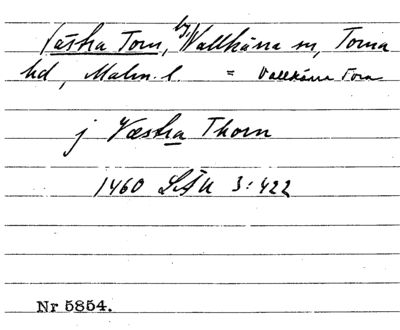 Västra Torn, by, Vallkärra sn, Torna
hd, Malm. l. = Vallkärra Torn
j Væstra Thorn
1460 LÄU 3:422
Nr 5854.